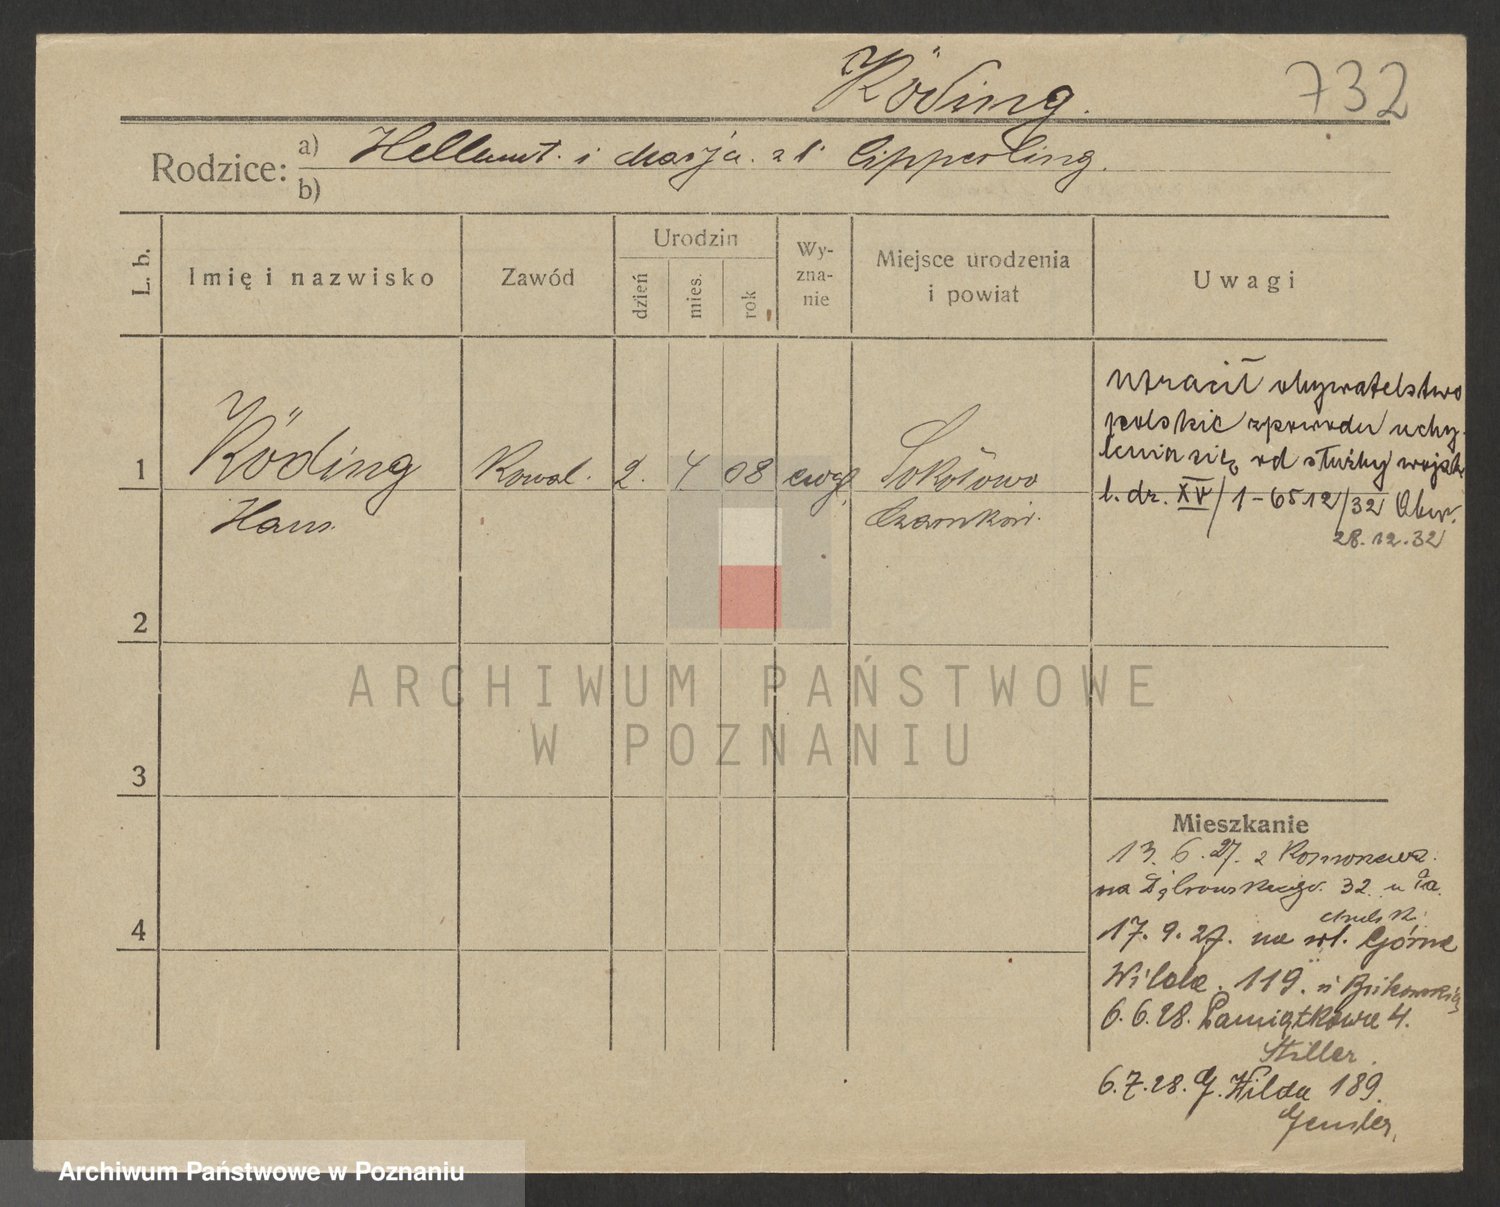 Köding.
732
Rodzice:
a) Hellmut. i Marja. z d. Cipperling.
b)
L. b.
Imię i nazwisko
Zawód
Urodzin
dzień
mies.
rok
Wy-
zna-
nie
Miejsce urodzenia
i powiat
Uwagi
1
Köding
Hans
Kowal.
2.
4
08
ewgl.
Sokołowo
Czarnków.
Utracił obywatelstwo
polskie zpowodu uchy-
lenia się od służby wojsk.
l. dz. XV/1-6512/32
28.12.32
2
3
4
Mieszkanie
13. 6. 27. z
na Dąbrowskiego. 32. u
17. 9. 27. na ul. Górna
Wilda. 119. u
6. 6. 28. Pamiątkowa 4.
Stiller.
6. 7. 28. G. Wilda 189.
Gensler.
ARCHIWUM PAŃSTWOWE
W POZNANIU
Archiwum Państwowe w Poznaniu